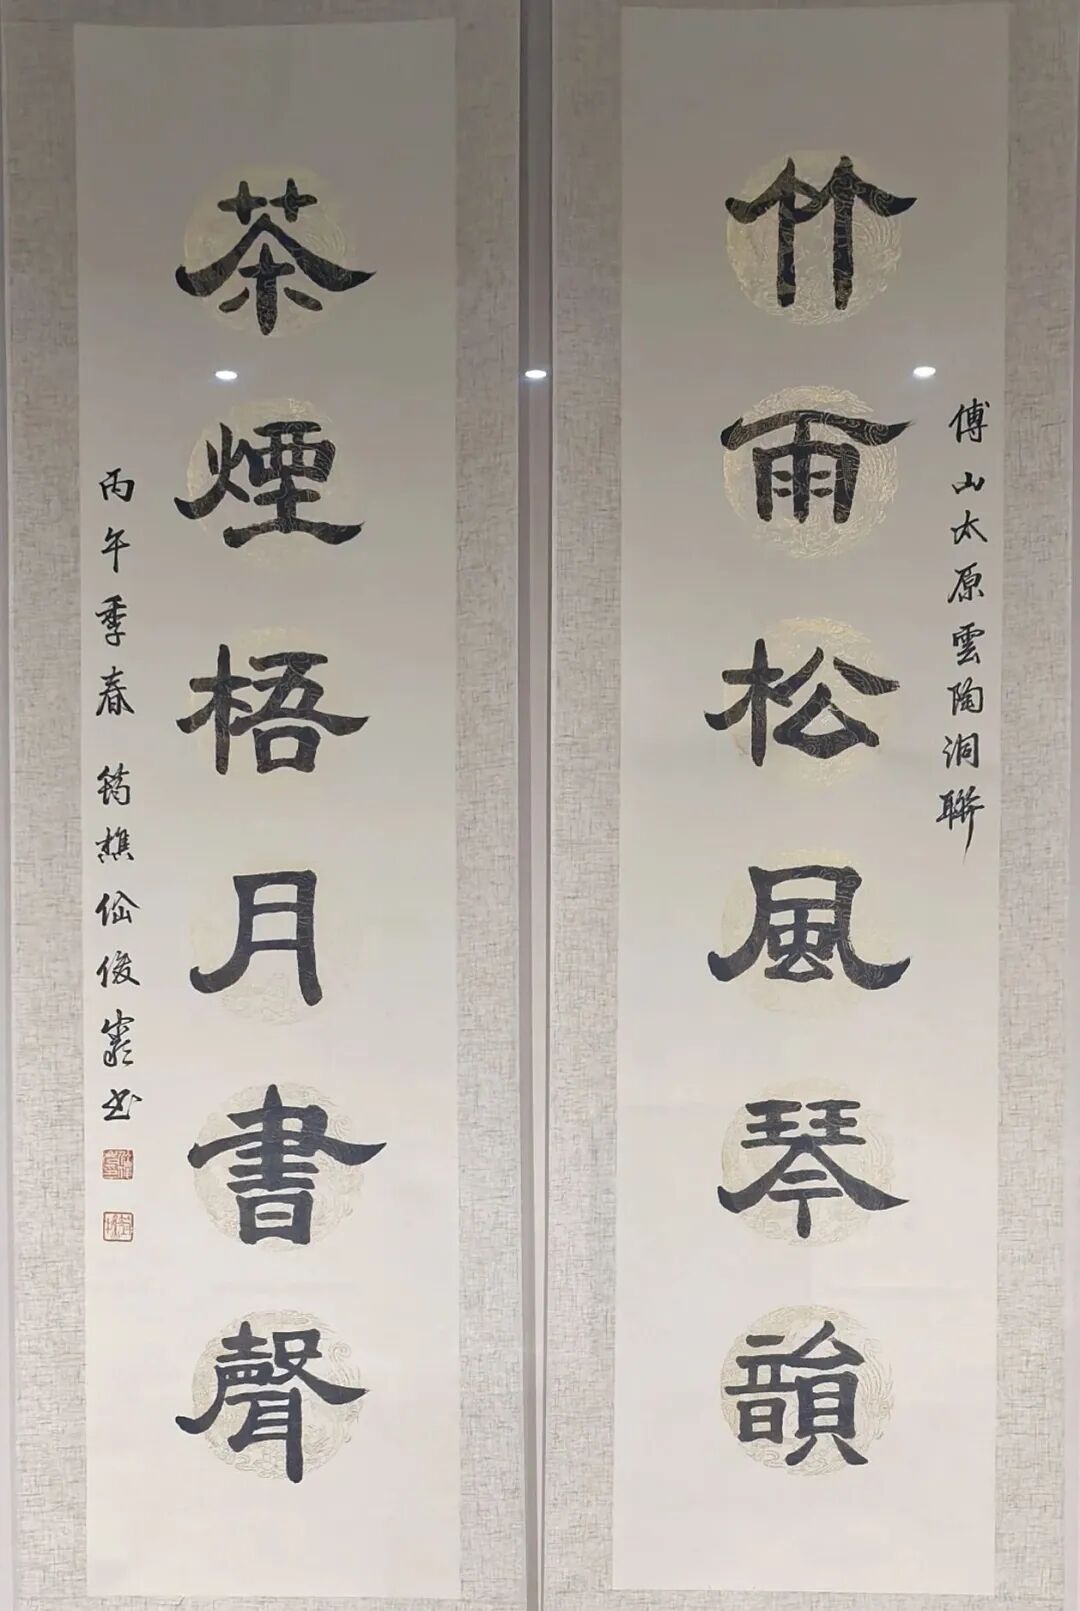 傅山太原雲陶洞聯
竹雨松風琴韻
茶煙梧月書聲
丙午季春 筠樵仙俊嚴书